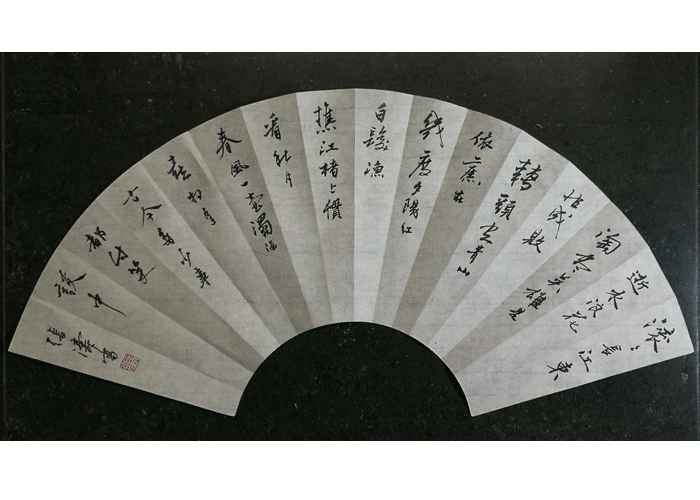 滚〻長江東
逝水浪花
淘尽英雄是
非成敗
轉頭空青山
依舊在
幾度夕陽紅
白髮漁
樵江渚上慣
看秋月
春風一壶濁酒
喜相逢
古今多少事
都付笑
談中